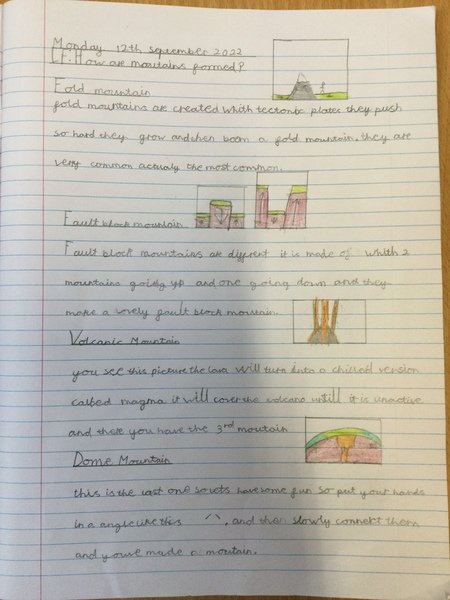 Monday 12th september 2022
LF: How are mountains formed?
Fold mountain
fold mountains are created whith tectonic plates they push
so hard they grow and then boom a fold mountain. they are
very common actualy the most common.
Fault block mountain
Fault block mountains are different it is made of whith 2
mountains going up and one going down and they
make a lovely fault block mountain.
Volcanic Mountain
you see this picture the lava will turn into a chilled version
called magma it will cover the volcano untill it is unactive
and there you have the 3rd moutain
Dome Mountain
this is the last one so lets have some fun so put your hands
in a angle like this ^, and then slowly connect them
and youve made a mountain.